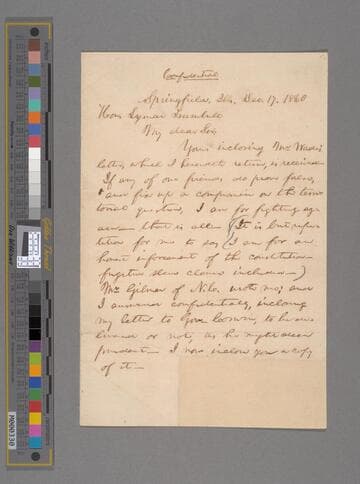 Confidential
Springfield, Ills. Dec. 17. 1860
Hon. Lyman Trumbull
My dear Sir:
Yours inclosing Mr. Wade's
letter, which I herewith return, is received.
If any of our friends do prove false,
and fix up a compromise on the terri-
torial question, I am for fighting ag-
ain - that is all. (It is but repe-
tition for me to say I am for an
honest inforcement of the constitution -
fugitive slave clause included -)
Mr. Gilmer of N.C. wrote me; and
I answered confidentially, inclosing
my letter to Gov. Corwin, to be de-
livered or not, as he might deem
prudent - I now inclose you a copy
of it -